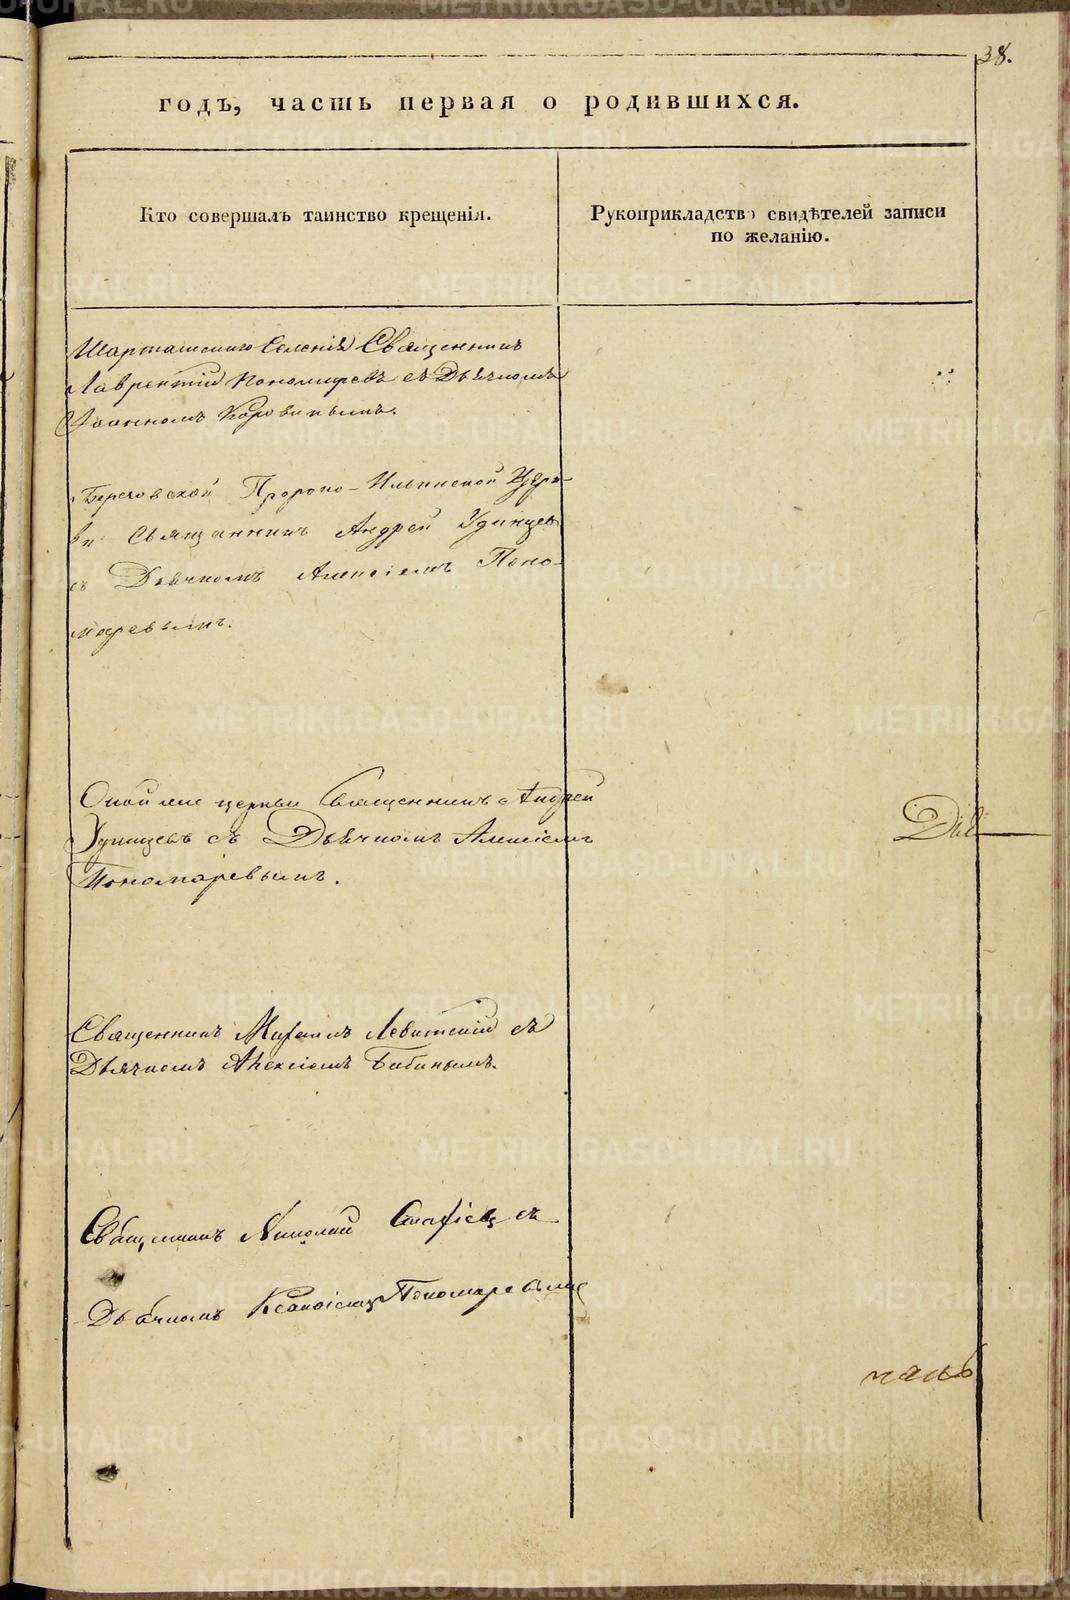 38.
годъ, часть первая о родившихся.
Кто совершалъ таинство крещенія.
Рукоприкладство свидѣтелей записи
по желанію.
Шарташскаго Селенія Священникъ
Лаврентій Пономаревъ съ Дьячкомъ
Іоанномъ Коровинымъ.
Березовской Пророко-Ильинской Церк-
ви Священникъ Андрей Удинцевъ
съ Дьячкомъ Алексіемъ Поно-
маревымъ.
Оной же церкви Священникъ Андрей
Удинцевъ съ Дьячкомъ Алексіемъ
Пономаревымъ.
Священникъ Михаилъ Левитскій съ
Дьячкомъ Алексіемъ Бабинымъ.
Священникъ Николай съ
Дьячкомъ Пономаревымъ
METRIKI.GASO-URAL.RU